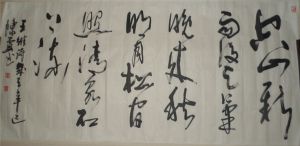 空山新
雨後天氣
晚來秋
明月松间
照清泉石
上流
王維詩